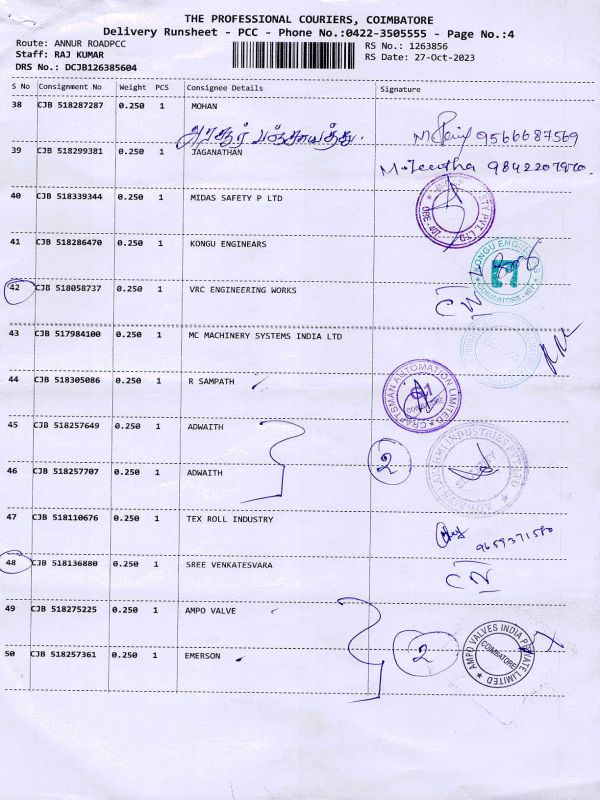 THE PROFESSIONAL COURIERS, COIMBATORE
Delivery Runsheet - PCC - Phone No.:0422-3505555 - Page No.:4
Route: ANNUR ROADPCC
RS No.: 1263856
Staff: RAJ KUMAR
RS Date: 27-Oct-2023
DRS No.: DCJB126385604
S No Consignment No Weight PCS Consignee Details Signature
38 CJB 518287287 0.250 1 MOHAN
9566687569
39 CJB 518299381 0.250 1 JAGANATHAN
40 CJB 518339344 0.250 1 MIDAS SAFETY P LTD
41 CJB 518286470 0.250 1 KONGU ENGINEARS
KONGU ENGINEERS
COIMBATORE
42 CJB 518058737 0.250 1 VRC ENGINEERING WORKS
CN
43 CJB 517984100 0.250 1 MC MACHINERY SYSTEMS INDIA LTD
44 CJB 518305086 0.250 1 R SAMPATH
CRAFTSMAN AUTOMATION LIMITED
COIMBATORE
45 CJB 518257649 0.250 1 ADWAITH
2
46 CJB 518257707 0.250 1 ADWAITH
47 CJB 518110676 0.250 1 TEX ROLL INDUSTRY
48 CJB 518136880 0.250 1 SREE VENKATESVARA
CN
49 CJB 518275225 0.250 1 AMPO VALVE
2
AMPO VALVES INDIA PRIVATE LIMITED
COIMBATORE
50 CJB 518257361 0.250 1 EMERSON